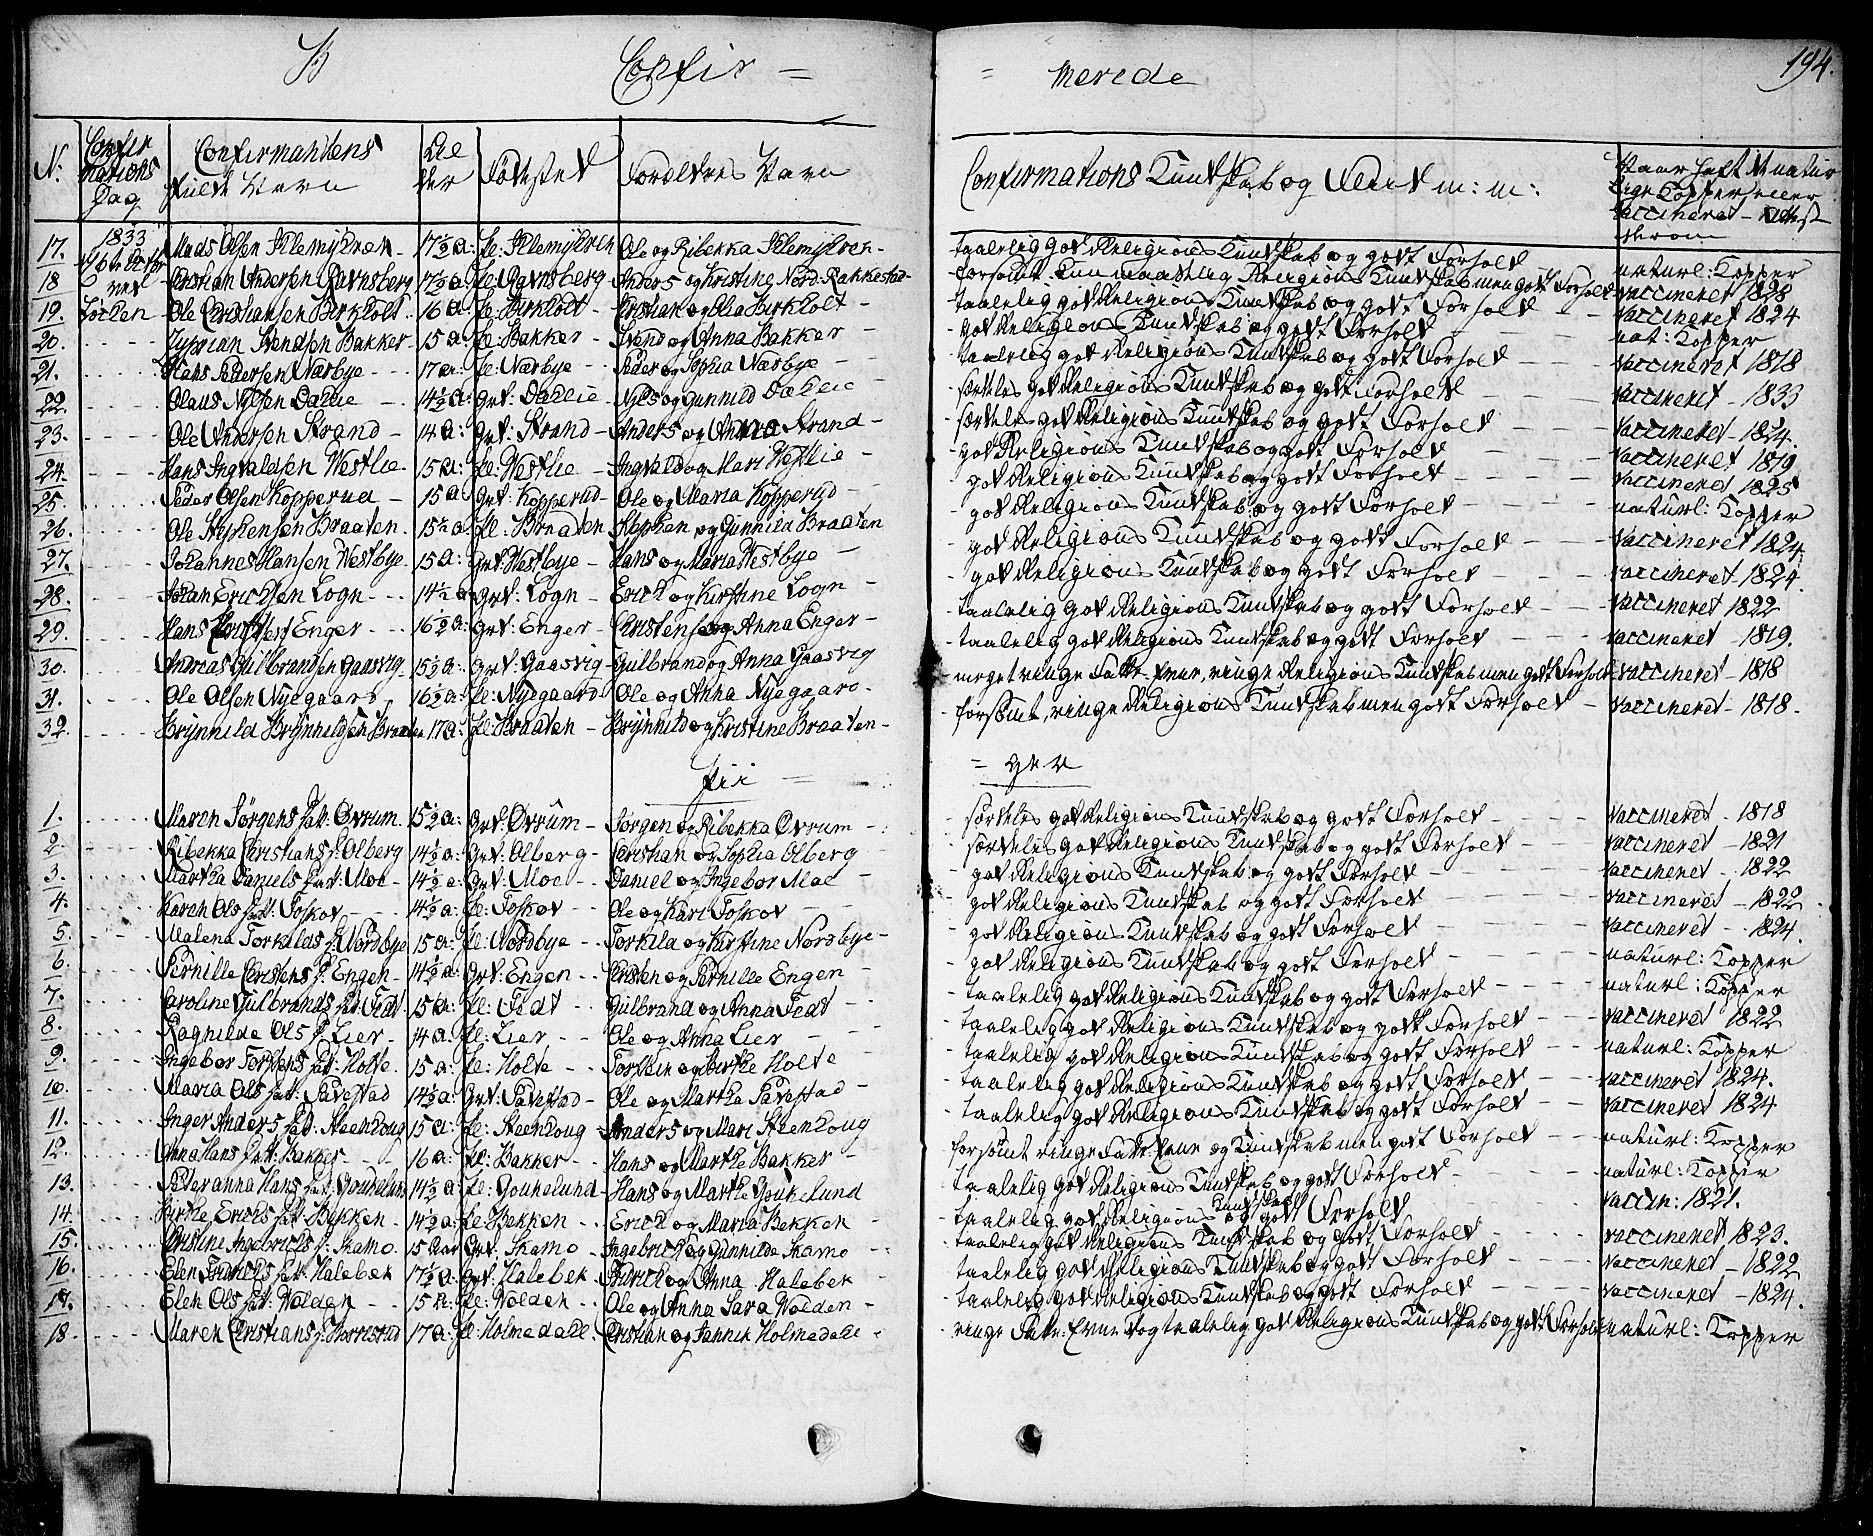 B Confir = = merede 194.
N. Confirmations Dag Confirmandens fulde Navn Alder Fødested Forældres Navn Confirmations Kundskab og Flid m: m: Naar haft de naturlige Kopper eller vaccineret - Attest derom
17. 1833 Mads Olsen Slemyhren - 17½ a: fl: Slemyhren Ole og Ribekka Slemyhren - taalelig god Religions Kundskab og godt Forhold naturl: Kopper
18 Christian Andersen Ravnsberg 17½ a fl: Ravnsberg Anders og Kristine Nord-Rakkestad - forsømt kun maadelig Religions Kundskab men godt Forhold vaccineret 1828
19. Ole Christiansen Birkholt 16 a fl: Birkholt - Christian og Olia Birkholt - taalelig god Religions Kundskab og godt Forhold vaccineret 1824
20. Zyprian Svendsen Bakker 15 a: fl: Bakker - Svend og Anna Bakker - god Religions Kundskab og godt Forhold nat: Kopper
21. Hans Pedersen Nærbye - 17 a: fl: Nærbye - Peder og Sophia Nærbye - taalelig god Religions Kundskab og godt Forhold vaccineret 1818
22. Olaus Nilsen Dahlie - 14½ a: grd: Dahlie - Nils og Gunnild Dahlie særdeles god Religions Kundskab og godt Forhold vaccineret - 1833
23. Ole Andersen Strand - 14 a: grd: Strand - Anders og Anna Strand - særdeles god Religions Kundskab og godt Forhold vaccineret - 1824.
24. Hans Ingvaldsen Westlie 15 a: fl: Westlie - Ingvald og Mari Westlie - god Religions Kundskab og godt Forhold vaccineret 1819
25. Peder Olsen Kopperud - 15 a grd: Kopperud - Ole og Maria Kopperud - god Religions Kundskab og godt Forhold vaccineret 1825
26. Ole Stephensen Braaten 15½ a: fl: Braaten Stephen og Gunnild Braaten god Religions Kundskab og godt Forhold naturl: Kopper
27. Johannes Hansen Westbye 15 a: grd: Westbye - Hans og Maria Westbye - god Religions Kundskab og godt Forhold vaccineret 1824
28. Johan Erichsen Logn - 14½ a grd: Logn - Erich og Kirstine Logn - god Religions Kundskab og godt Forhold vaccineret - 1824
29. Hans Enger - 16½ a: grd: Enger - og Anna Enger - taalelig god Religions Kundskab og godt Forhold vaccineret 1822
30. Andreas Gulbrandsen Gaasvig 15½ a: grd: Gaasvig - Gulbrand og Anna Gaasvig taalelig god Religions Kundskab og godt Forhold vaccineret - 1819.
31. Ole Olsen Nyegaard 16½ a: fl: Nyegaard - Ole og Anna Nyegaard - meget ringe Fatte-Evne, ringe Religions Kundskab men godt Forhold vaccineret - 1818
32. Brynnild Brynnildsen Braaten 17 a: fl: Braaten - Brynnild og Kristine Braaten - forsømt, ringe Religions Kundskab men godt Forhold - vaccineret - 1818 -
Pii = = ger
1. Maren Jørgens dat: Ovrum 15½ a: grd: Ovrum - Jørgen og Ribekka Ovrum - særdeles god Religions Kundskab og godt Forhold - vaccineret - 1818
2. Ribekka Christians d: Olberg 14½ a: grd: Olberg - Christian og Sophia Olberg - særdeles god Religions Kundskab og godt Forhold - vaccineret - 1821
3. Martha Daniels dat: Moe - 14½ a: grd: Moe - Daniel og Ingebor Moe - god Religions Kundskab og godt Forhold - vaccineret - 1822
4. Karen Ols dat: Foskov - 14½ a: fl: Foskov - Ole og Kari Foskov - god Religions Kundskab og godt Forhold - vaccineret - 1822
5. Malena Torkilds d: Nordbye 15 a: fl: Nordbye - Torkild og Kirstine Nordbye - god Religions Kundskab og godt Forhold - vaccineret - 1824.
6. Pernille Christens d: Engen - 14½ a: grd: Engen - Christen og Pernille Engen - god Religions Kundskab og godt Forhold - naturl: Kopper
7. Caroline Gulbrands dat: Fedt 15 a: fl: Fedt - Gulbrand og Anna Fedt - taalelig god Religions Kundskab og godt Forhold - naturl: Kopper
8. Raghilde Ols d: Lier - 14 a: fl: Lier - Ole og Anna Lier - taalelig god Religions Kundskab og godt Forhold - vaccineret 1822
9. Ingebor Torgens dat: Holte 15 a: fl: Holte - og Birthe Holte taalelig god Religions Kundskab og godt Forhold - naturl: Kopper
10. Maria Ols dat: 14½ a: grd: Ole og Marthe taalelig god Religions Kundskab og godt Forhold - vaccineret 1824.
11. Inger Anders dat: Steenhoug 15 a: fl: Steenhoug - Anders og Mari Steenhoug taalelig god Religions Kundskab og godt Forhold - vaccineret 1824
12. Anna Hans dat: Bakker - 16 a: fl: Bakker - Hans og Marthe Bakker - forsømt ringe Fatte Evne og Kundskab men godt Forhold - naturl: Kopper
13. Pederanna Hans dat: 14½ a fl: - Hans og Marthe taalelig god Religions Kundskab og godt Forhold - naturl: Kopper
14. Birthe Erichs dat: Bekken - 14½ a: fl: Bekken - Erich og Maria Bekken taalelig god Religions Kundskab og godt Forhold vaccin: 1821.
15. Christine Ingebrichts d: Skamo 15 aar grd: Skamo - Ingebricht og Gunnilde Skamo taalelig god Religions Kundskab og godt Forhold - vaccineret 1823.
16. Elen dat: Halebek 17½ a: grd: Halebek og Anna Halebek - taalelig god Religions Kundskab og godt Forhold - vaccineret - 1822
17. Elen Ols dat: Volden - 15 a: fl: Volden - Ole og Anna Sara Volden - taalelig god Religions Kundskab og godt Forhold - vaccineret - 1824.
18. Maren Christians d: 17 a: fl: Holmedahl - Christian og Holmedahl - ringe Fatte-Evne dog taalelig god Religions Kundskab og godt Forhold naturl: Kopper